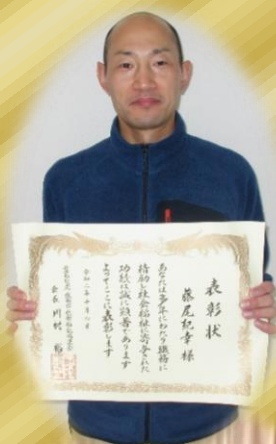 表彰状
藤尾紀幸様
あなたは多年にわたり職務に
精励し社会福祉に寄与された
功績は誠に顕著であります
よってここに表彰します
令和二年十月六日
会長 川村